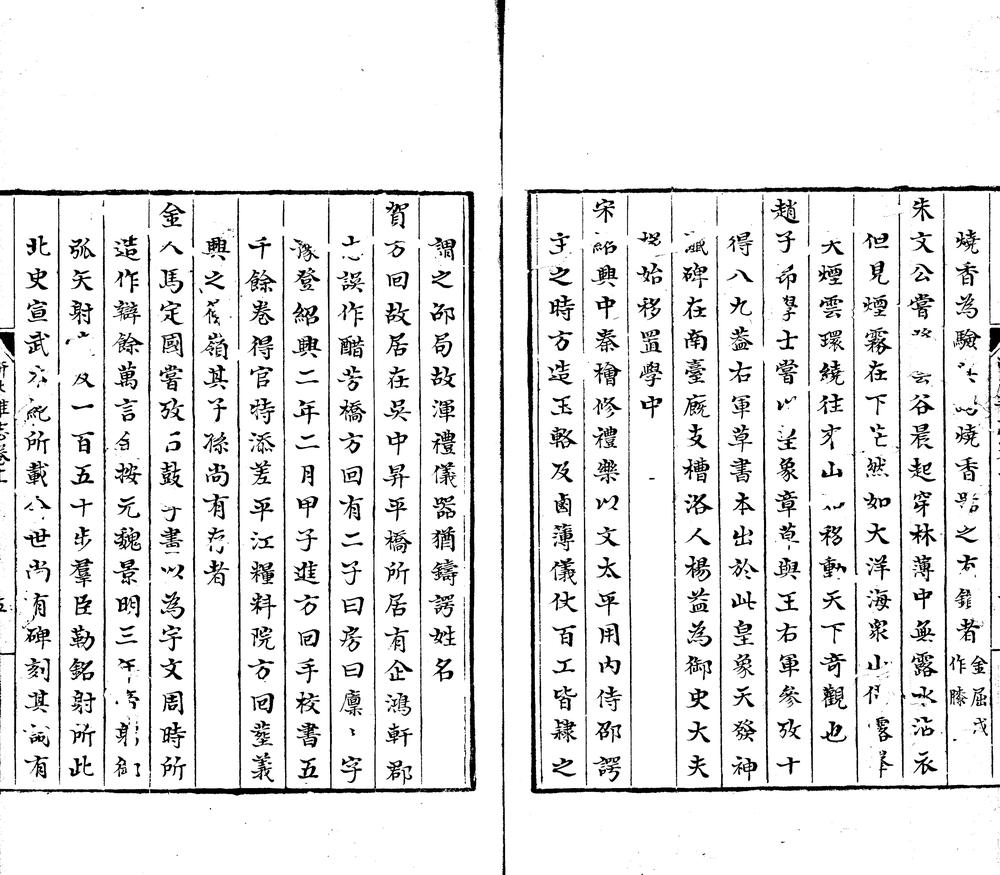 燒香為驗燒香點之有錯者金屈戌作膝
朱文公嘗登雲谷晨起穿林薄中無露水沾衣
但見煙霧在下茫然如大洋海眾山僅露峯
大煙雲環繞往來山如移動天下奇觀也
趙子昂學士嘗以皇象章草與王右軍參攷十
得八九益右軍草書本出於此皇象天發神
讖碑在南臺廐支槽洛人楊益為御史大夫
始移置學中
宋紹興中秦檜修禮樂以文太平用内侍邵諤
主之時方造玉輅及鹵薄儀仗百工皆隸之
謂之邵局故渾禮儀器猶鑄諤姓名
賀方回故居在吳中昇平橋所居有企鴻軒郡
志誤作醋芳橋方回有二子曰房曰廩〻字
豫登紹興二年二月甲子進方回手校書五
千餘卷得官特添差平江糧料院方回塟義
興之篠嶺其子孫尚有存者
金人馬定國嘗攷石鼓字畫以為宇文周時所
造作辯餘萬言余按元魏景明三年帝躬御
弧矢射遠及一百五十步羣臣勒銘射所此
北史宣武紀所載今世尚有碑刻其詞有